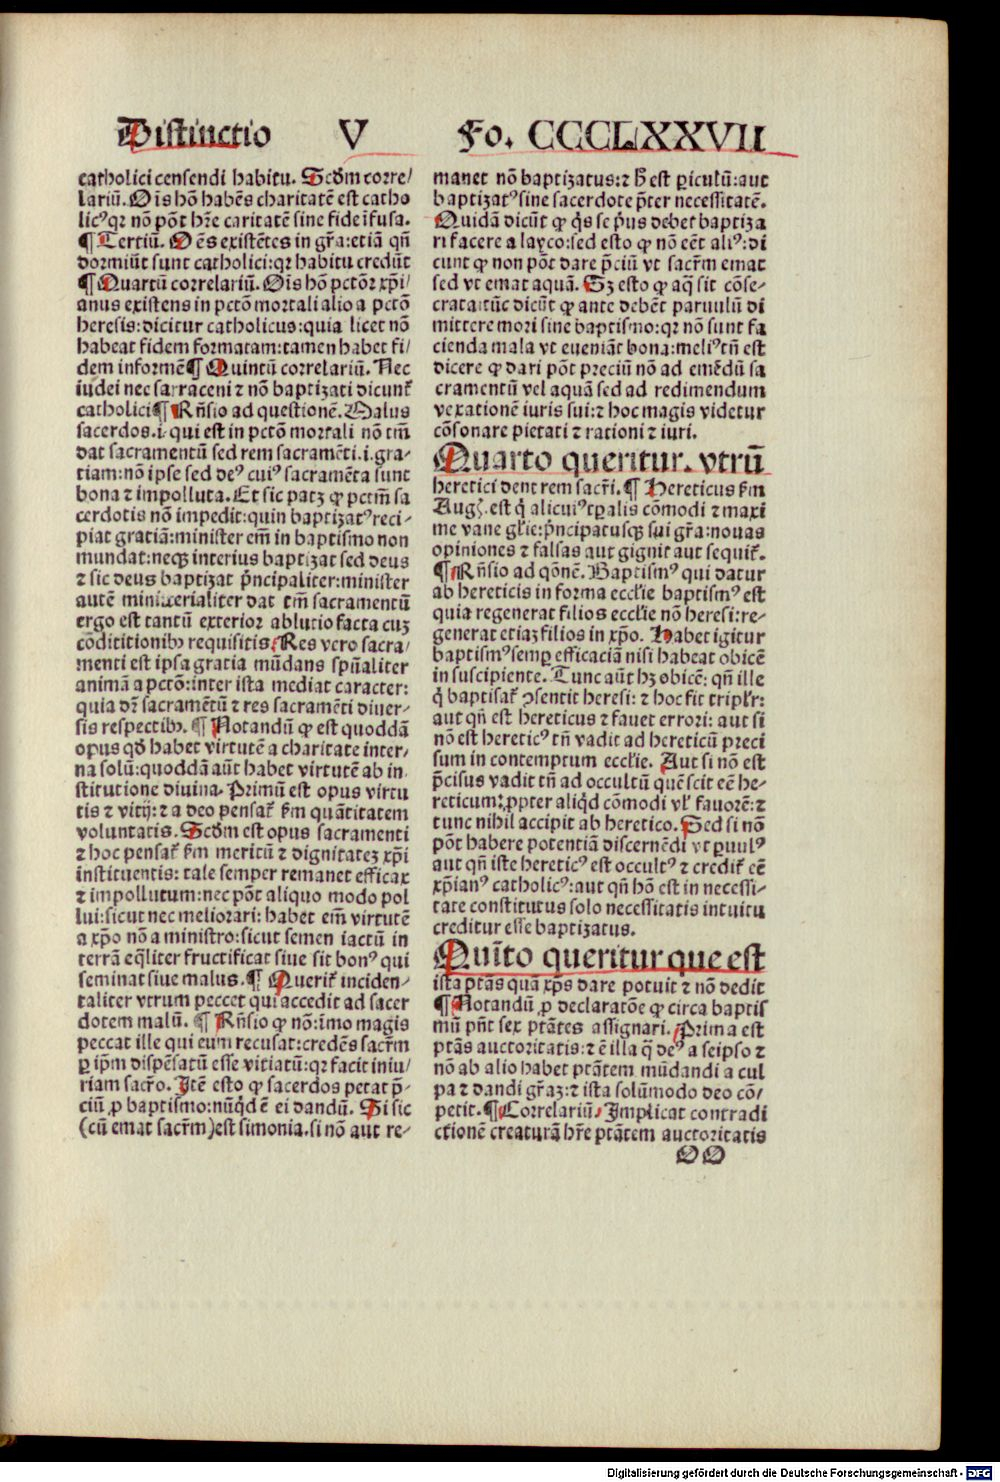 Distinctio V Fo. CCCCLXXVII
catholici censendi habitu. Scđm corre/
lariū. Oīs hō habēs charitatē est catho
licꝰ qꝛ nō pōt hr̄e caritatē sine fide īfusa.
¶ Tertiū. Oēs existētes in gr̄a: etiā qñ
dormiūt sunt catholici: qꝛ habitu credūt
¶ Quartū correlariū. Oīs hō pctōꝛ xp̄i/
anus existens in pctō mortali alio a pctō
heresis: dicitur catholicus: quia licet nō
habeat fidem formatam: tamen habet fi/
dem informē ¶ Quintū correlariū. Nec
iudei nec sarraceni ⁊ nō baptizati dicunt᷑
catholici ¶ Rñsio ad questionē. Malus
sacerdos .i. qui est in pctō mortali nō tm̄
dat sacramentū sed rem sacramēti .i. gra-
tiam: nō ipse sed deꝰ cuiꝰ sacramēta sunt
bona ⁊ impolluta. Et sic patꝫ ꝙ pctm̄ sa
cerdotis nō impedit: quin baptizatꝰ reci-
piat gratiā: minister em̄ in baptismo non
mundat: neqꝫ interius baptizat sed deus
⁊ sic deus baptizat p̄ncipaliter: minister
autē ministerialiter dat tm̄ sacramentū
ergo est tantū exterior ablutio facta cuꝫ
cōdititionibꝰ requisitis. Res vero sacra/
menti est ipsa gratia mūdans spūaliter
animā a pctō: inter ista mediat caracter:
quia dr̄ sacramētū ⁊ res sacramēti diuer-
sis respectibꝰ. ¶ Notandū ꝙ est quoddā
opus qđ habet virtutē a charitate inter/
na solū: quoddā aūt habet virtutē ab in,
stitutione diuina. Primū est opus virtu
tis ⁊ vitij: ⁊ a deo pensat᷑ ẜm quātitatem
voluntatis. Scđm est opus sacramenti
⁊ hoc pensat᷑ ẜm meritū ⁊ dignitateꝫ xp̄i
instituentis: tale semper remanet efficax
⁊ impollutum: nec pōt aliquo modo pol
lui: sicut nec meliorari: habet em̄ virtutē
a xp̄o nō a ministro: sicut semen iactū in
terrā eq̄liter fructificat siue sit bonꝰ qui
seminat siue malus. ¶ Querit᷑ inciden-
taliter vtrum peccet qui accedit ad sacer
dotem malū. ¶ Rñsio ꝙ nō: īmo magis
peccat ille qui eum recusat: credēs sacr̄m
ꝑ ip̄m dispēsatū esse vitiatū: qꝛ facit iniu/
riam sacr̄o. Itē esto ꝙ sacerdos petat p̄-
ciū ꝓ baptismo: nūqđ ē ei dandū. Si sic
(cū emat sacr̄m) est simonia. si nō aut re/
manet nō baptizatus: ⁊ h̄ est ꝑiculū: aut
baptizatꝰ sine sacerdote p̄ter necessitatē.
Quidā dicūt ꝙ q̄s se pꝰus debet baptiza
ri facere a layco: sed esto ꝙ nō eēt aliꝰ: di
cunt ꝙ non pōt dare p̄ciū vt sacr̄m emat
sed vt emat aquā. Sꝫ esto ꝙ aq̄ sit cōse-
crata: tūc dicūt ꝙ ante debēt paruulū di
mittere mori sine baptismo: qꝛ nō sunt fa
cienda mala vt eueniāt bona: meliꝰ tñ est
dicere ꝙ dari pōt preciū nō ad emēdū sa
cramentū vel aquā sed ad redimendum
vexationē iuris sui: ⁊ hoc magis videtur
cōsonare pietati ⁊ rationi ⁊ iuri.
Quarto queritur. vtrū
heretici dent rem sacr̄i. ¶ Hereticus ẜm
Aug. est q̄ alicuiꝰ tꝑalis cōmodi ⁊ maxi
me vane gl̄ie: p̄ncipatusqꝫ sui gr̄a: nouas
opiniones ⁊ falsas aut gignit aut sequit᷑.
¶ Rñsio ad qōnē. Baptismꝰ qui datur
ab hereticis in forma eccl̄ie baptismꝰ est
quia regenerat filios eccl̄ie nō heresi: re-
generat etiaꝫ filios in xp̄o. Habet igitur
baptismꝰ semꝑ efficaciā nisi habeat obicē
in suscipiente. Tunc aūt hꝫ obicē: qñ ille
q̄ baptisat᷑ ꝯsentit heresi: ⁊ hoc fit tripłr:
aut qñ est hereticus ⁊ fauet errori: aut si
nō est hereticꝰ tñ vadit ad hereticū preci
sum in contemptum eccl̄ie. Aut si nō est
p̄cisus vadit tñ ad occultū quē scit eē he-
reticum: ꝓpter aliq̄d cōmodi vł fauorē: ⁊
tunc nihil accipit ab heretico. Sed si nō
pōt habere potentiā discernēdi vt ꝑuulꝰ
aut qñ iste hereticꝰ est occultꝰ ⁊ credit᷑ eē
xp̄ianꝰ catholicꝰ: aut qñ hō est in necessi-
tate constitutus solo necessitatis intuitu
creditur esse baptizatus.
Quīto queritur que est
ista ptās quā xp̄s dare potuit ⁊ nō dedit
¶ Notandū ꝓ declaratōe ꝙ circa baptis
mū pñt sex ptātes assignari. Prima est
ptās auctoritatis: ⁊ ē illa q̄ deꝰ a seipso ⁊
nō ab alio habet ptātem mūdandi a cul
pa ⁊ dandi gr̄aꝫ: ⁊ ista solūmodo deo cō/
petit. ¶ Correlariū. Implicat contradi
ctionē creaturā hr̄e ptātem auctoritatis
OO
Digitalisierung gefördert durch die Deutsche Forschungsgemeinschaft - DFG